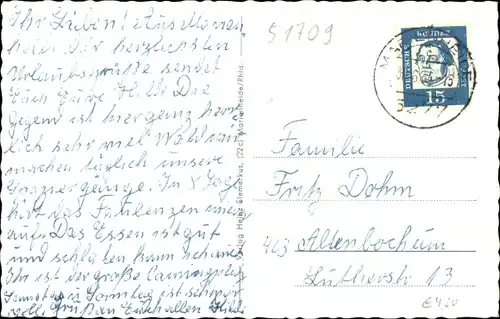 Ihr Lieben! Aus Marien-
heide die herzlichsten
Urlaubsgrüße sendet
Euch Eure Hilde. Die
Gegend ist hier ganz herr-
lich sehr viel Wald wir
machen täglich unsere
Spaziergänge. In 8 Tage
hört das Faulenzen wieder
auf. Das Essen ist gut
und schlafen kann ich auch
Hier ist der große Campingplatz
Samstag u. Sonntag ist schon
voll Gruß an Euch allen Hilde
Verlag Heinz Siemerkus, (22c) Marienheide/Rhld.
51709
DEUTSCHE BUNDESPOST
15
Familie
Fritz Dohm
463 Altenbochum
Lutherstr 13
€4,50